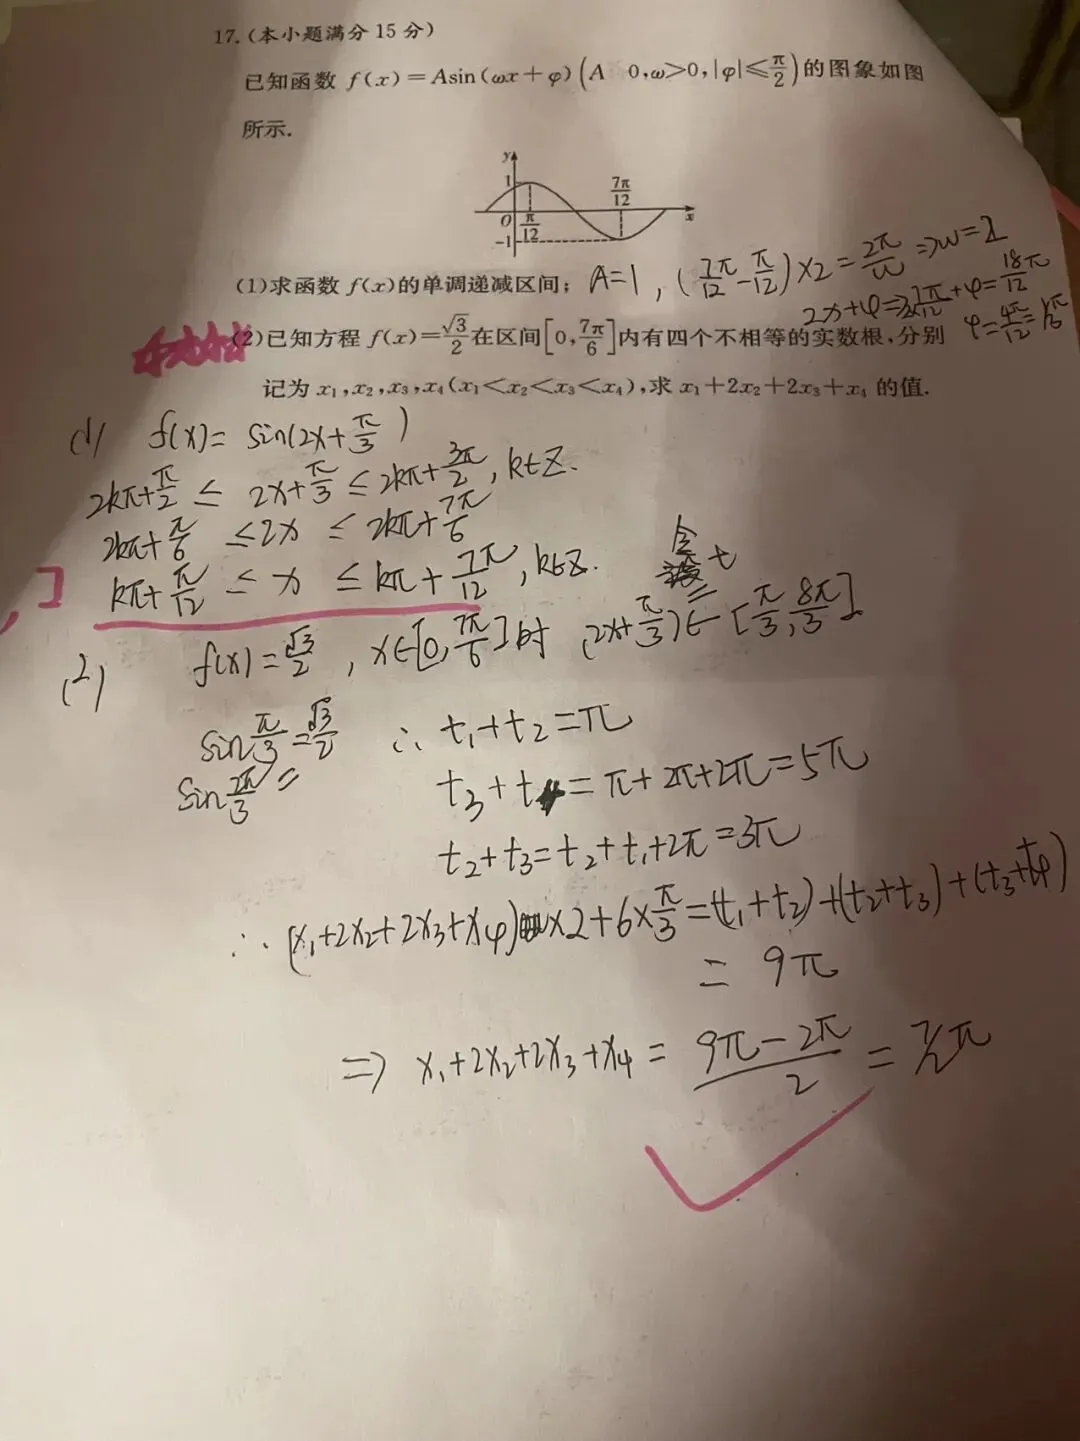 17.(本小题满分15分)
已知函数 f(x)=Asin(ωx+φ)(A 0,ω>0,|φ|≤π/2)的图象如图
所示.
y
1
7π/12
O
π/12
x
-1
(1)求函数 f(x)的单调递减区间; A=1, (7π/12-π/12)×2=2π/ω⇒ω=2
2x+φ= 7π/12+φ=18π/12
φ=4π/12=
(2)已知方程 f(x)=√3/2在区间[0,7π/6]内有四个不相等的实数根,分别
记为 x₁,x₂,x₃,x₄(x₁<x₂<x₃<x₄),求 x₁+2x₂+2x₃+x₄ 的值.
(1) f(x)=sin(2x+π/3)
2kπ+π/2≤2x+π/3≤2kπ+3π/2,k∈Z.
2kπ+π/6≤2x≤2kπ+7π/6
kπ+π/12≤x≤kπ+7π/12,k∈Z.
]
令t
(2) f(x)=√3/2,x∈[0,7π/6]时(2x+π/3)∈[π/3,8π/3]
sinπ/3=√3/2 ∴t₁+t₂=π
sin2π/3=
t₃+t₄=π+2π+2π=5π
t₂+t₃=t₂+t₁+2π=3π
∴(x₁+2x₂+2x₃+x₄)×2+6×π/3=(t₁+t₂)+(t₂+t₃)+(t₃+t₄)
=9π
⇒x₁+2x₂+2x₃+x₄=(9π-2π)/2=7/2π